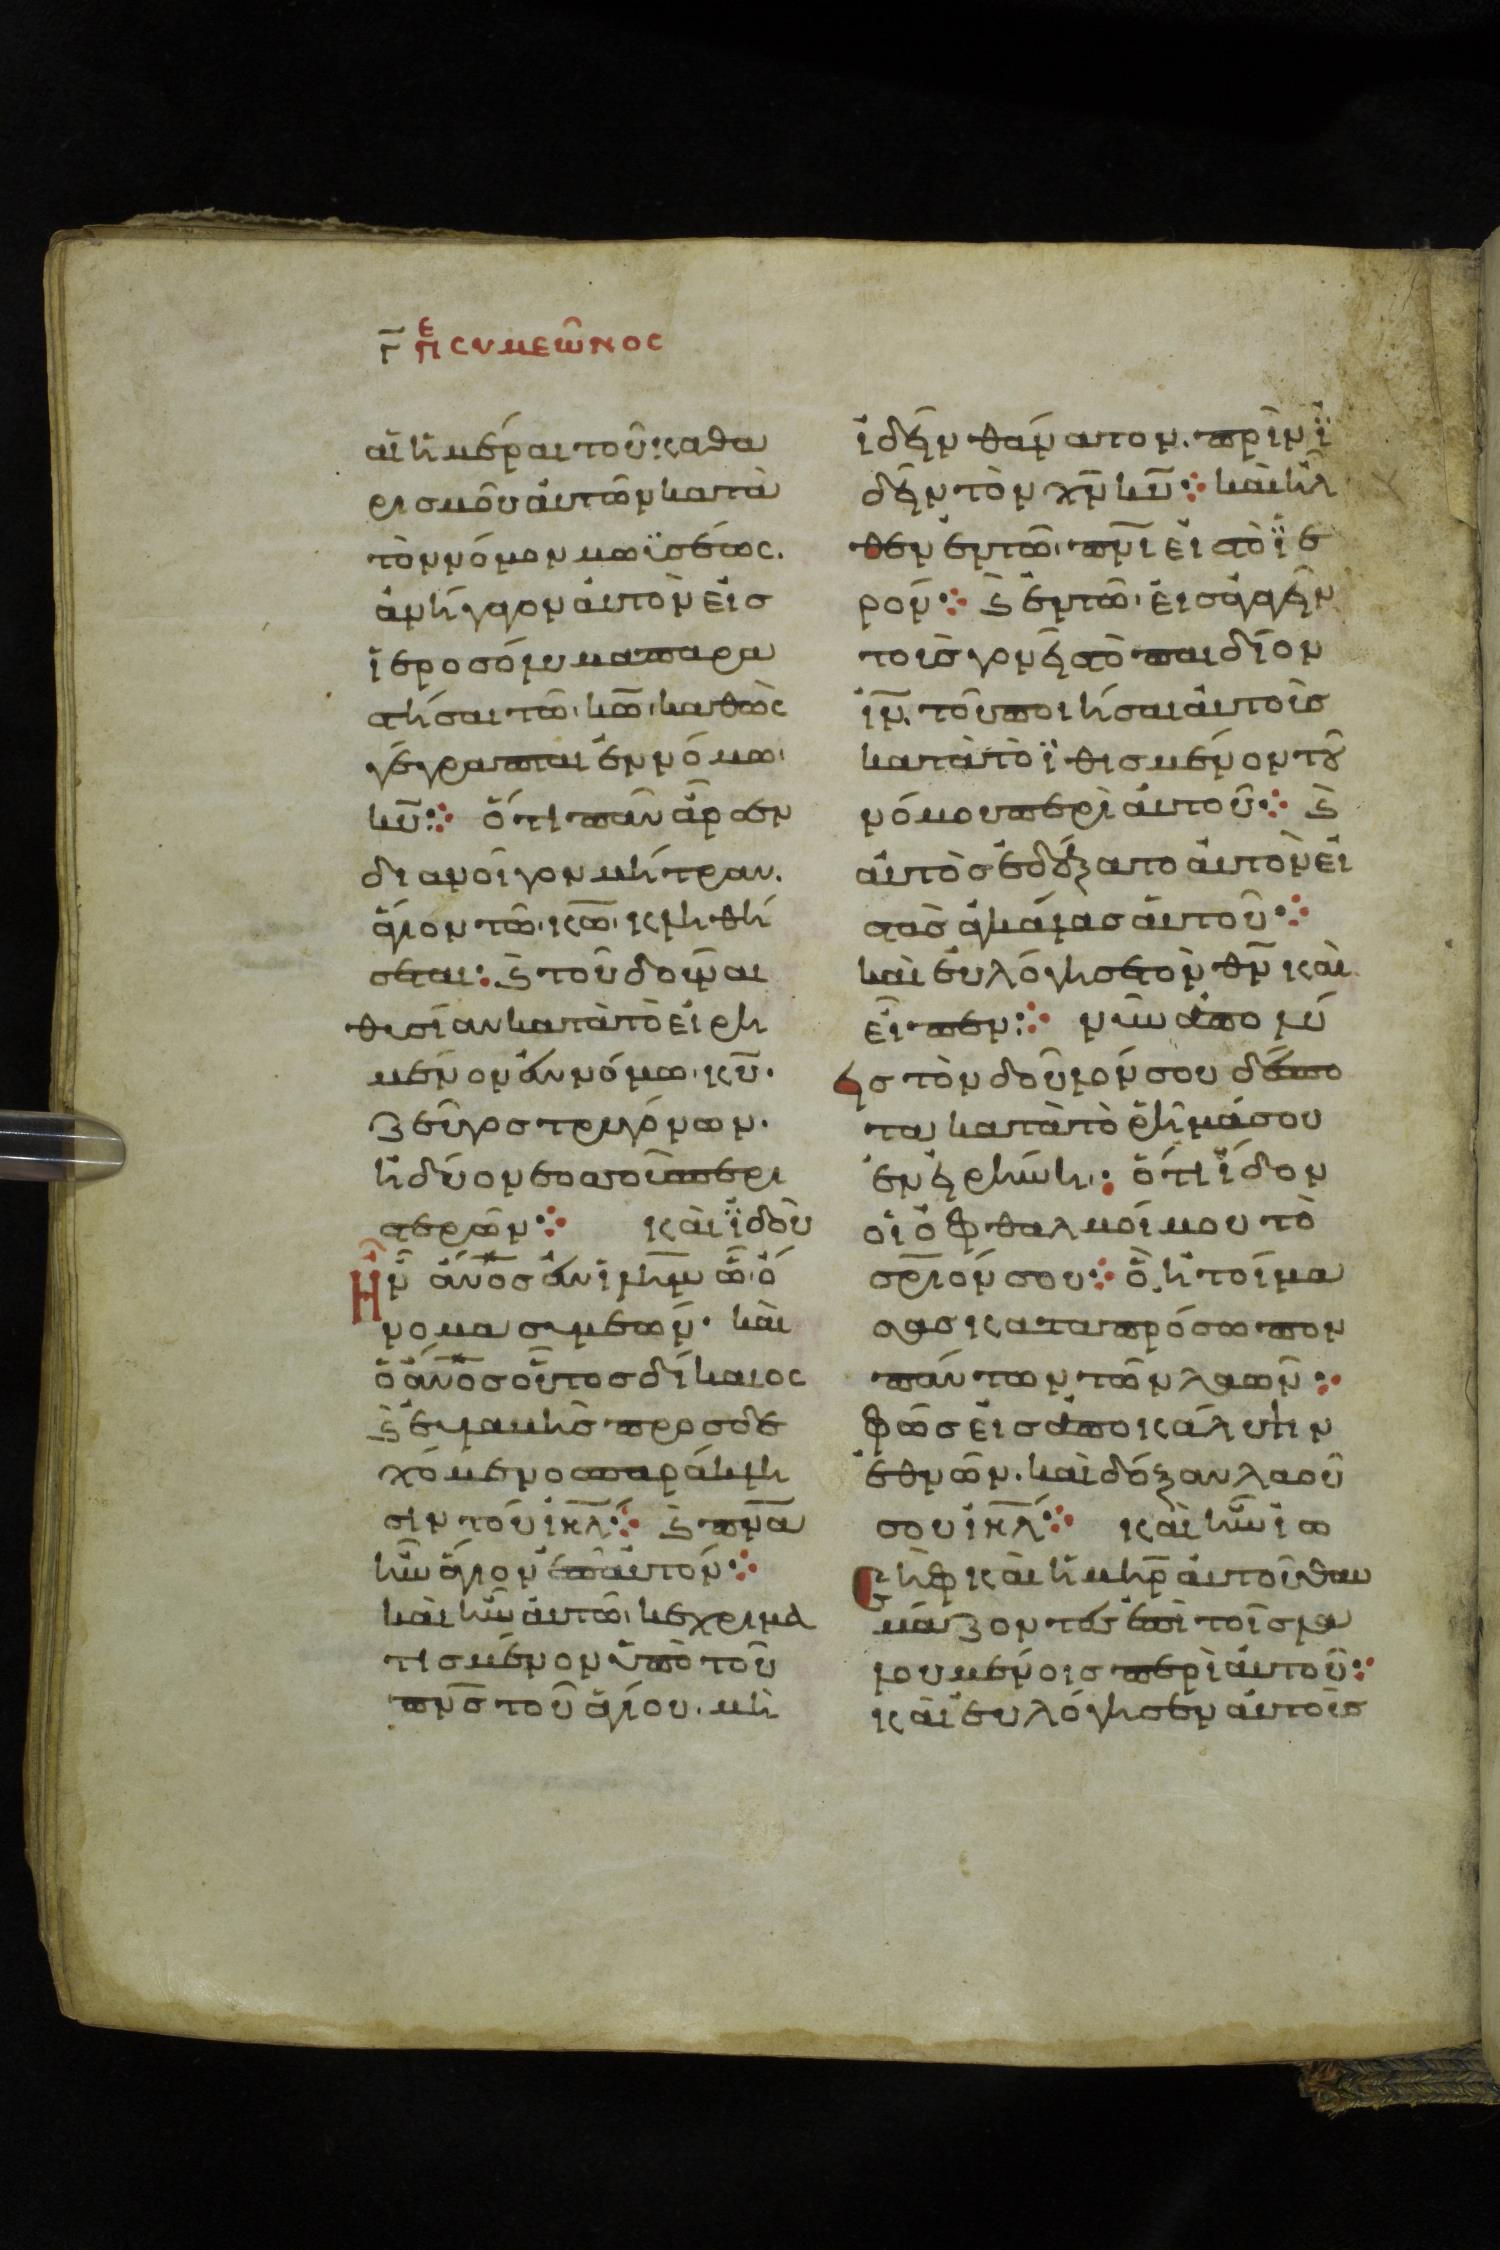 Γ̅ πε συμεῶνος
αἱ ἡμέραι τοῦ καθα
ρισμοῦ αὐτῶν κατὰ
τὸν νόμον μωϊσέως.
ἀνήγαγον αὐτὸν εἰσ
ἱεροσόλυμα παρα
στῆσαι τῶ κω̅. καθὼς
γέγραπται ἐν νόμω
κυ̅ ⁘ ὅτι πᾶν ἄρσεν
διανοῖγον μήτραν.
ἅγιον τῶ κω̅ κληθή
σεται: ϗ τοῦ δοῦναι
θυσίαν κατὰ τὸ εἰρη
μένον ἐν νόμω κυ̅.
ζεῦγος τρυγόνων.
ἢ δύο νεοσσοὺς περι
στερῶν ⁘ καὶ ἰδοὺ
ἦν ἄνο̅σ ἐν ἰλη̅μ ὧ ὄ
νομα συμεών. καὶ
ὁ ἄνο̅σ οὗτοσ δίκαιος
ϗ εὐλαβὴσ προσδε
χόμενοσ παράκλη
σιν τοῦ ιη̅λ ⁘ ϗ πνα̅
ἦν ἅγιον ἐπ' αὐτόν ⁘
καὶ ἦν αὐτῶ κεχρημα
τισμένον ὑπὸ τοῦ
πνσ̅ τοῦ ἁγίου. μὴ
ἰδεῖν θάνατον. πρὶν ἴ
δειν τὸν χν̅ κυ̅ ⁘ καὶ ἦλ
θεν ἐν τῶ πνι̅ εἰσ τὸ ἱε
ρόν ⁘ ϗ ἐν τῶ εἰσαγαγεῖν
τοὺσ γονεῖσ τὸ παιδίον
ιν̅. τοῦ ποιῆσαι αὐτοὺσ
κατὰ τὸ ἰθισμένον τοῦ
νόμου περὶ αὐτοῦ ⁘ ϗ
αὐτὸσ ἐδέξατο αὐτὸν εἰ
σ τὰσ ἀγκάλασ αὐτοῦ ⁘
καὶ εὐλόγησε τὸν θν̅ καὶ
εἶπεν ⁘ νῦν ἀπολύ
εισ τὸν δοῦλόν σου δέσπο
τα κατὰ τὸ ῥῆμά σου
ἐν εἰρήνη: ὅτι ἴδον
οἱ ὀφθαλμοί μου τὸ
σρ̅ιόν σου ⁘ ὃ ἡτοίμα
σασ κατὰ πρόσωπον
πάντων τῶν λαῶν ⁘
φῶσ εἰσ ἀποκάλυψιν
ἐθνῶν. καὶ δόξαν λαοῦ
σου ιη̅λ ⁘ καὶ ἦν ἰω
σὴφ καὶ ἡ μηρ̅ αὐτοῦ θαυ
μάζοντεσ ἐπὶ τοῖσ λα
λουμένοισ περὶ αὐτοῦ ⁘
καὶ εὐλόγησεν αὐτοὺσ